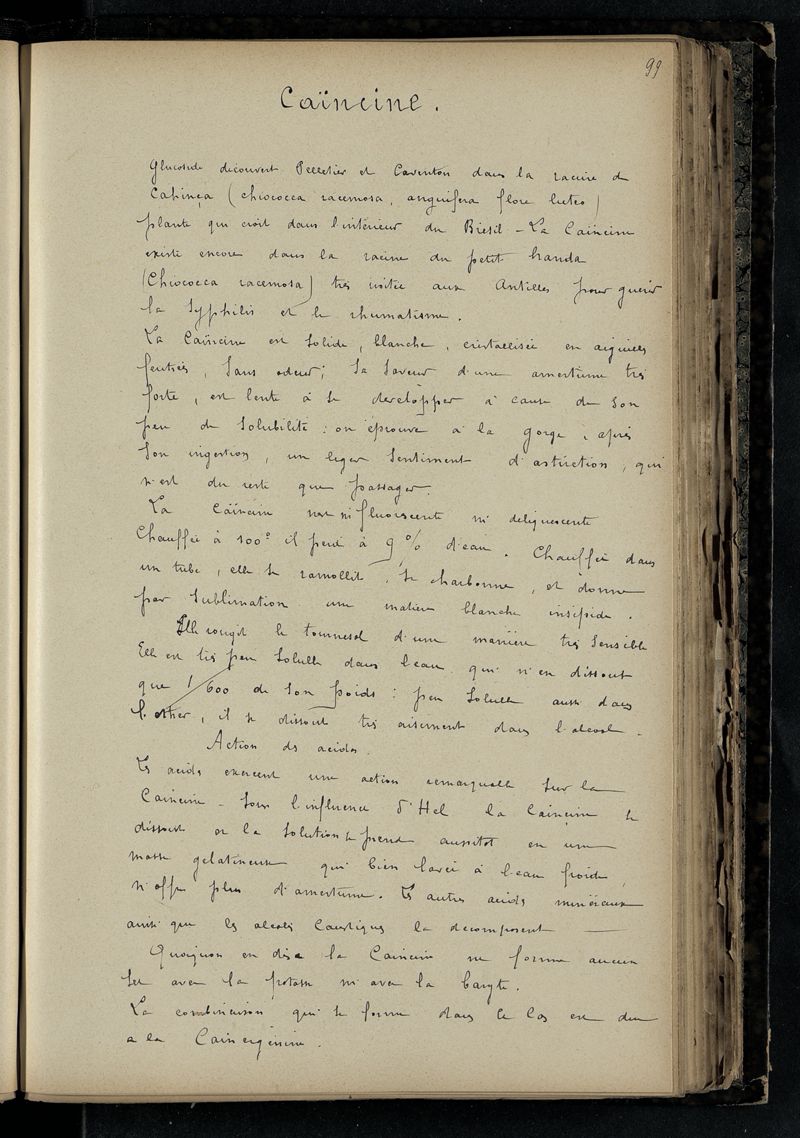 99
Caïncine.
Glucoside découvert Pelletier et Caventou dans la racine de
Cahinça (chiococca racemosa, anguifera flore luteo)
plante qui croit dans l'intérieur du Brésil - La Caïncine
existe encore dans la racine du petit branda
(Chiococca racemosa) très usitée aux Antilles pour guérir
la Syphilis et le rhumatisme.
La Caïncine est solide, blanche, cristallisée en aiguilles
feutrées, sans odeur; sa saveur d'une amertume très
forte, est lente à se développer à cause de son
peu de solubilité: on éprouve à la gorge, après
son ingestion, un léger sentiment d'astriction, qui
n'est du reste que passager.
La Caïncine n'est ni fluorescente ni deliquescente
Chauffée à 100° il perd à 9 % d'eau. Chauffée dans
un tube, elle se ramollit, se charbonne, et donne
par sublimation une matière blanche insipide.
Elle rougit le tournesol d'une manière très sensible
Elle est très peu soluble dans l'eau qui n'en dissout
que 1/600 de son poids: peu soluble aussi dans
l'ether, il se dissout très aisement dans l'alcool.
Action des acides.
Les acides exercent une action remarquable sur la
Caïncine. Sous l'influence d'Hcl la Caïncine se
dissout or la solution se prend aussitot en une
masse gelatineuse qui bien lavée à l'eau froide,
n'offre plus d'amertume. Les autres acides minéraux
ainsi que les alcalis caustiques la decomposent
Quoiqu'on en dise la Caïncine ne forme aucun
sel avec la potasse ni avec la baryte.
La combinaison qui se forme dans ce cas est due
a la Caïncigénine.